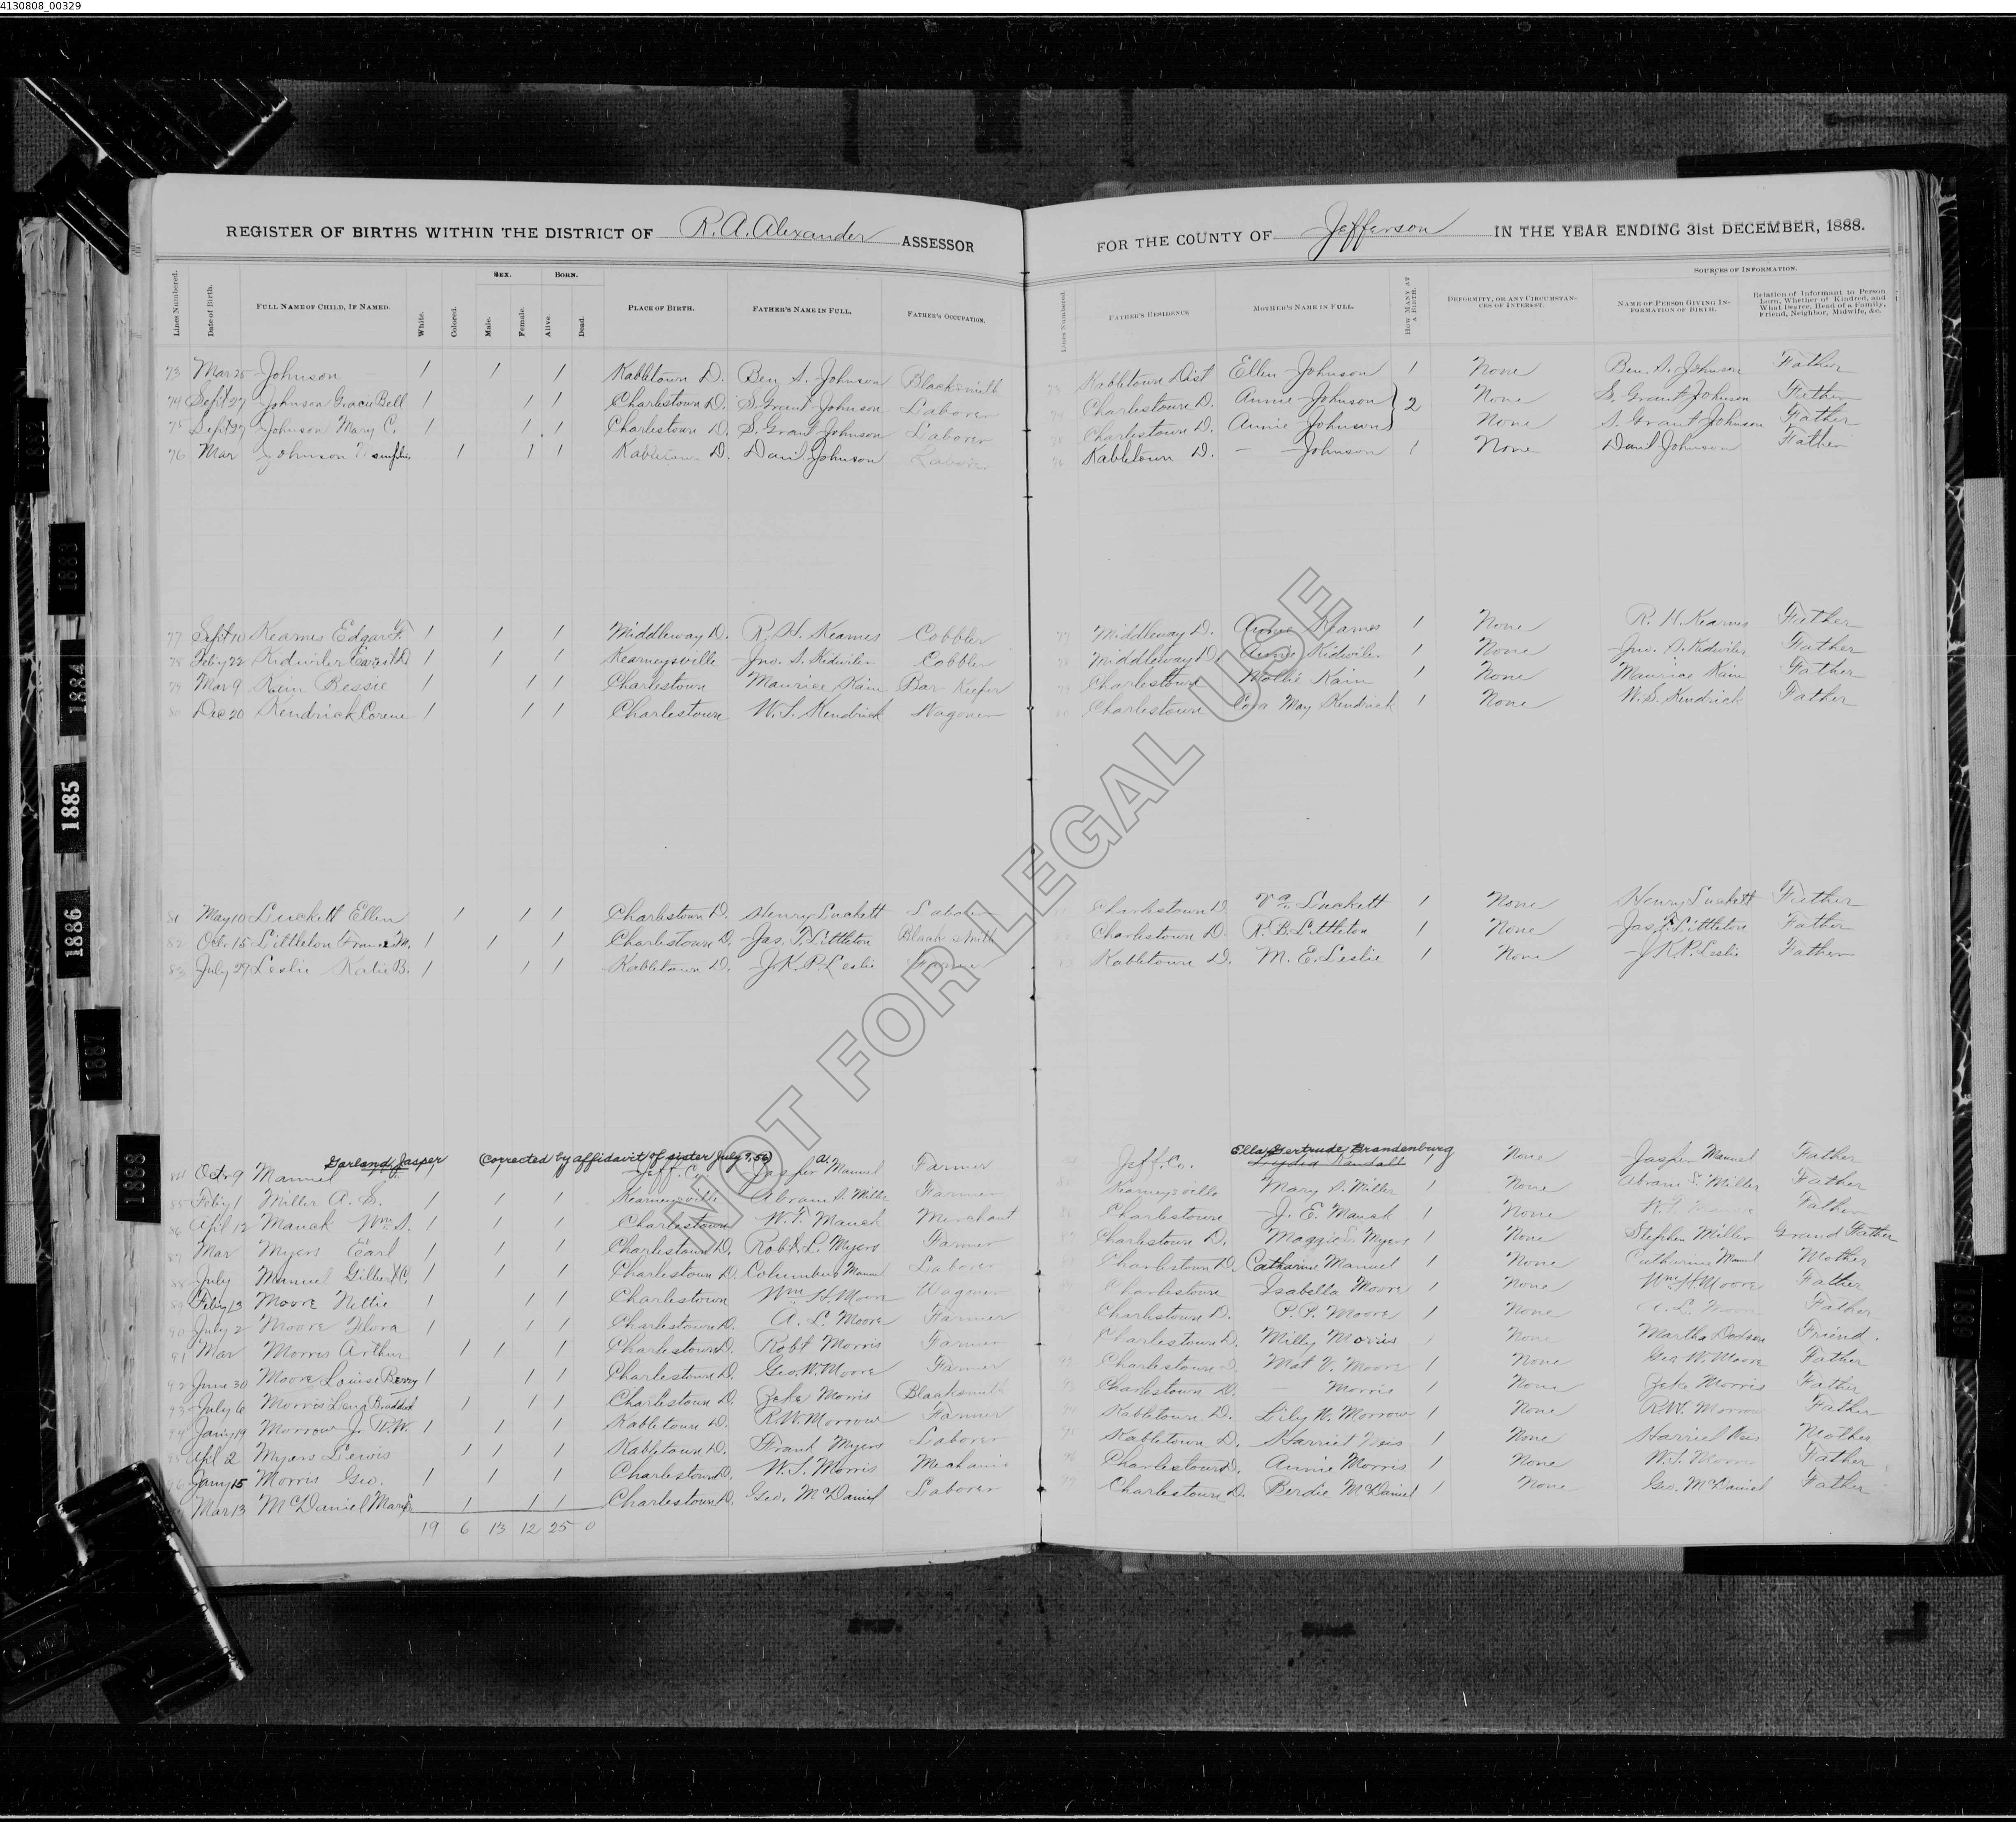 4130808_00329
REGISTER OF BIRTHS WITHIN THE DISTRICT OF R. A. Alexander ASSESSOR FOR THE COUNTY OF Jefferson IN THE YEAR ENDING 31st DECEMBER, 1888.
SEX. BORN. SOURCES OF INFORMATION.
Lines Numbered. Date of Birth. FULL NAME OF CHILD, IF NAMED. White. Colored. Male. Female. Alive. Dead. PLACE OF BIRTH. FATHER'S NAME IN FULL. FATHER'S OCCUPATION. Lines Numbered. FATHER'S RESIDENCE MOTHER'S NAME IN FULL. HOW MANY AT A BIRTH. DEFORMITY, OR ANY CIRCUMSTANCES OF INTEREST. NAME OF PERSON GIVING INFORMATION OF BIRTH. Relation of Informant to Person Born, Whether of Kindred, and What Degree, Head of a Family, Friend, Neighbor, Midwife, &c.
73 Mar 25 Johnson 1 1 1 Kabletown D. Ben S. Johnson Blacksmith Kabletown Dist Ellen Johnson 1 None Ben. S. Johnson Father
74 Sept 27 Johnson Gracie Bell 1 1 1 Charlestown D. S. Grant Johnson Laborer Charlestown D. Annie Johnson 2 None S. Grant Johnson Father
75 Sept 27 Johnson Mary C. 1 1 1 Charlestown D. S. Grant Johnson Laborer Charlestown D. Annie Johnson None S. Grant Johnson Father
76 Mar Johnson 1 1 1 Kabletown D. Danil Johnson Laborer Kabletown D. — Johnson 1 None Danil Johnson Father
77 Sept 10 Kearnes Edgar F. 1 1 1 Middleway D. R. H. Kearnes Cobbler Middleway D. Annie Kearnes 1 None R. H. Kearns Father
78 Feby 22 Kidwiler 1 1 1 Kearneysville Jno. S. Kidwiler Cobbler Middleway D Annie Kidwiler 1 None Jno. S. Kidwiler Father
79 Mar 9 Kain Bessie 1 1 1 Charlestown Maurice Kain Bar Keefer Charlestown Mollie Kain 1 None Maurice Kain Father
80 Dec 20 Kendrick Corene 1 1 1 Charlestown W. S. Kendrick Wagoner Charlestown Cora May Kendrick 1 None W. S. Kendrick Father
81 May 10 Luckett Ellen 1 1 1 Charlestown D. Henry Luckett Laborer Charlestown D Va. Luckett 1 None Henry Luckett Father
82 Oct. 15 Littleton M. 1 1 1 Charlestown D. Jas. F. Littleton Black smith Charlestown D. R. B. Littleton 1 None Jas F. Littleton Father
83 July 29 Leslie Katie B. 1 1 1 Kabletown D. J. K. P. Leslie Farmer Kabletown D. M. E. Leslie 1 None J. K. P. Leslie Father
Garland Jasper (Corrected by affidavit of sister July 9, 56) Ella Gertrude Brandenburg
84 Oct. 9 Manuel Jeff. Co. Jasper Manuel Farmer Jeff. Co. Lydia Randall 1 None Jasper Manuel Father
85 Feby 1 Miller A. S. 1 1 1 Kearneysville Abram S. Miller Farmer Kearneysville Mary S. Miller 1 None Abram S. Miller Father
86 Apil 12 Mauck Wm. S. 1 1 1 Charlestown W. T. Mauck Merchant Charlestown J. E. Mauck 1 None W. T. Mauck Father
87 Mar Myers Earl 1 1 1 Charlestown D. Robt. L. Myers Farmer Charlestown D. Maggie L. Myers 1 None Stephen Miller Grand Father
88 July Manuel Gilbert C. 1 1 1 Charlestown D. Columbus Manuel Laborer Charlestown D. Catharine Manuel 1 None Catharine Manuel Mother
89 Feby 13 Moore Nettie 1 1 1 Charlestown Wm H. Moore Wagoner Charlestown Isabella Moore 1 None Wm. H. Moore Father
90 July 2 Moore Flora 1 1 1 Charlestown D. A. L. Moore Farmer Charlestown D. P. P. Moore 1 None A. L. Moore Father
91 Mar Morris Arthur 1 1 1 Charlestown D. Robt Morris Farmer Charlestown D. Milly Morris 1 None Martha Dodson Friend.
92 June 30 Moore Louise Berry 1 1 1 Charlestown D. Geo. W. Moore Farmer Charlestown D Mat V. Moore 1 None Geo. W. Moore Father
93 July 6 Morris Lena 1 1 1 Charlestown D. Zeke Morris Blacksmith Charlestown D. — Morris 1 None Zeke Morris Father
94 Jany 19 Morrow Jr. R. W. 1 1 1 Kabletown D. R. W. Morrow Farmer Kabletown D. Lily N. Morrow 1 None R. W. Morrow Father
95 Apl 2 Myers Lewis 1 1 1 Kabletown D. Frank Myers Laborer Kabletown D. Harriet 1 None Harriet Mother
96 Jany 15 Morris Geo. 1 1 1 Charlestown D. W. S. Morris Mechanic Charlestown D. Annie Morris 1 None W. S. Father
Mar 13 McDaniel 1 1 1 Charlestown D. Geo. McDaniel Laborer 97 Charlestown D. Berdie McDaniel 1 None Geo. McDaniel Father
19 6 13 12 25 0
NOT FOR LEGAL USE
1882
1883
1884
1885
1886
1887
1888
1889